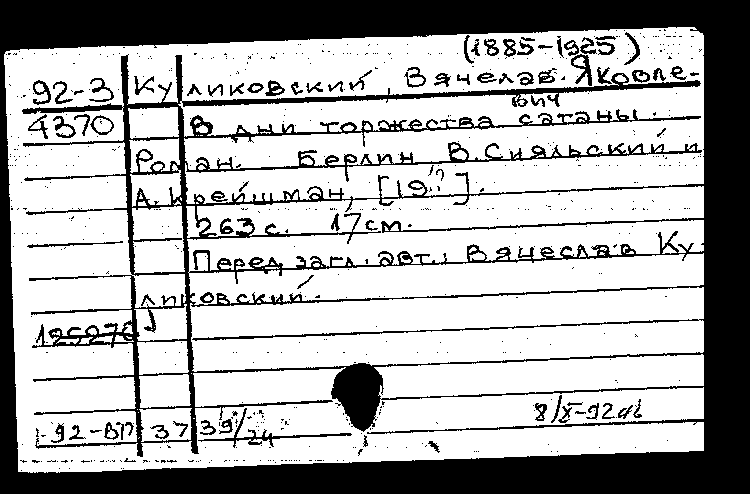 (1885-1925)
92-3 Куликовский, Вячеслав Яковлевич
4370 В дни торжества сатаны.
Роман. Берлин В.Сияльский и
А.Крейшман, [19??].
263 с. 17 см.
Перед загл. авт.: Вячеслав Ку-
ликовский.
125276
92-ВП 37 39/24 8/X-92